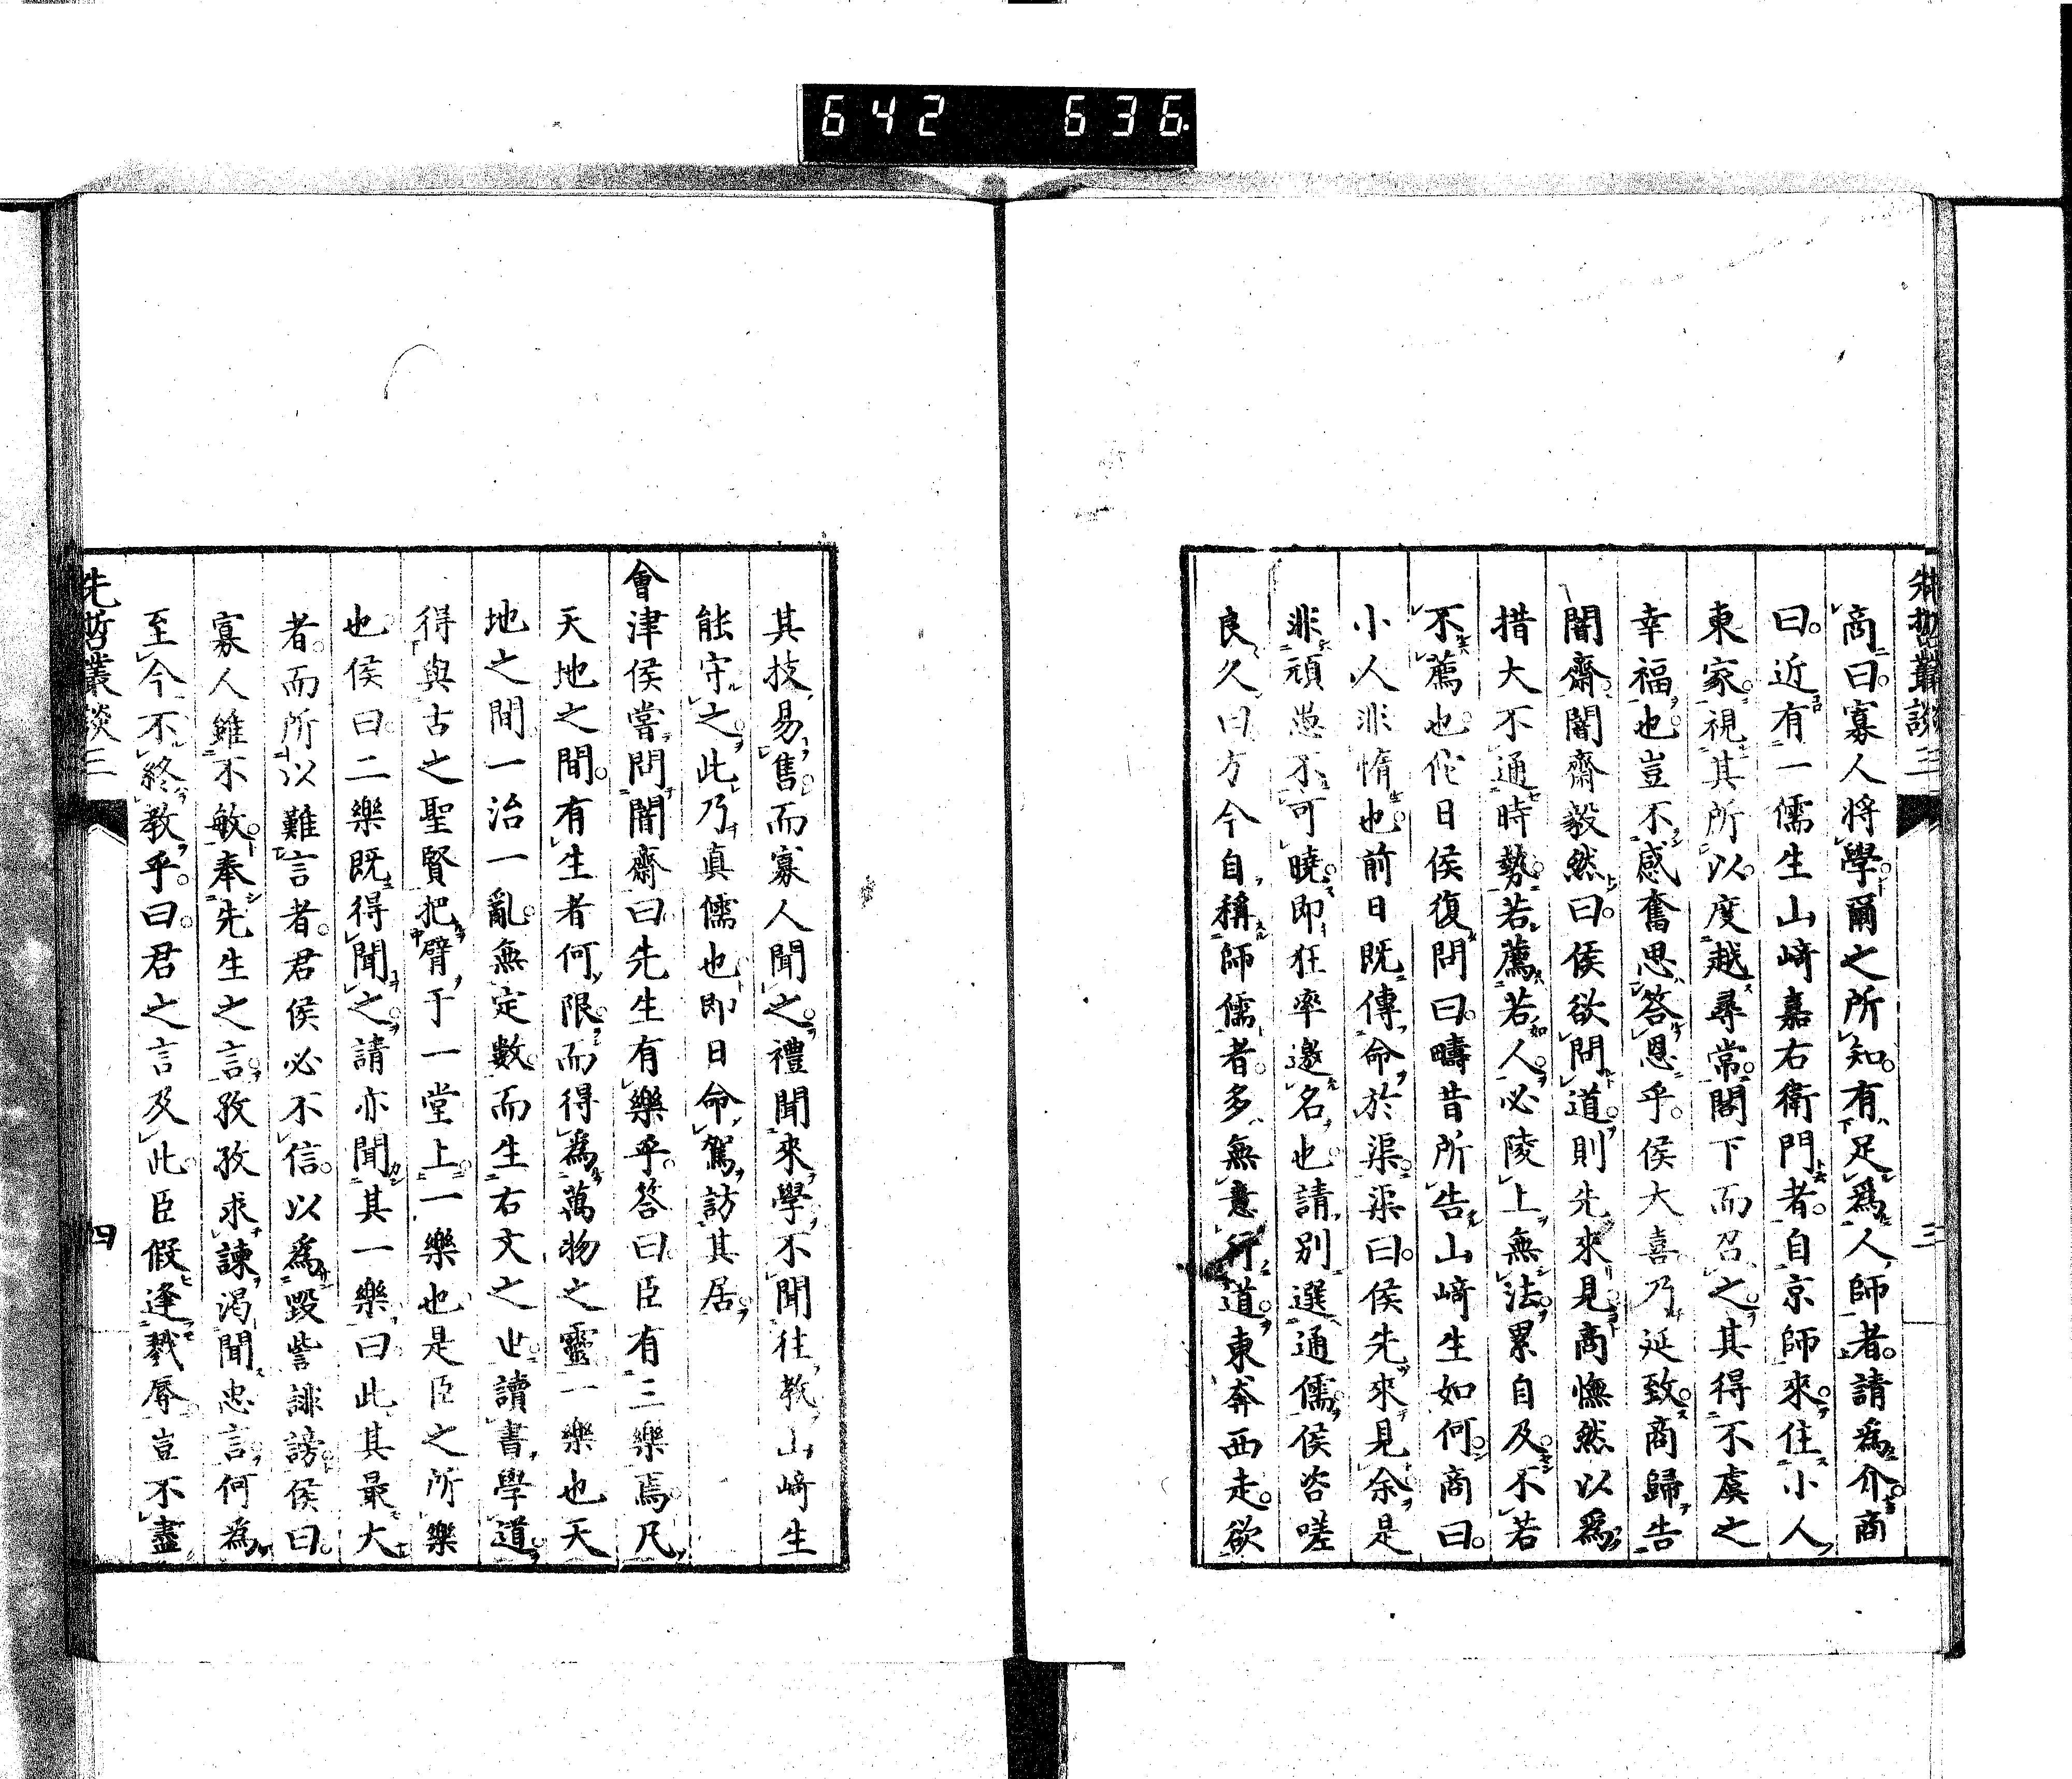 642 636
先哲叢談三 三
商曰寡人將學爾之所知有足爲人師者請爲介商
曰近有一儒生山﨑嘉右衛門者自京師來住小人
東家視其所以度越尋常閣下而召之其得不虞之
幸福也豈不感奮思答恩乎侯大喜乃延致商歸告
闇齋闇齋毅然曰侯欲問道則先來見商憮然以爲
措大不通時勢若薦若人必陵上無法累自及不若
不薦也佗日侯復問曰疇昔所告山﨑生如何商曰
小人非惰也前日既傳命於渠渠曰侯先來見余是
非頑愚不可曉即狂率邀名也請別選通儒侯咨嗟
良久曰方今自稱師儒者多無意行道東奔西走欲
其技易售而寡人聞之禮聞來學不聞往教山﨑生
能守之此乃真儒也即日命駕訪其居
會津侯嘗問闇齋曰先生有樂乎答曰臣有三樂焉凡
天地之間有生者何限而得爲萬物之靈一樂也天
地之間一治一亂無定數而生右文之世讀書學道
得與古之聖賢把臂于一堂上一樂也是臣之所樂
也侯曰二樂既得聞之請亦聞其一樂曰此其最大
者而所以難言者君侯必不信以爲毀訾誹謗侯曰
寡人雖不敏奉先生之言孜孜求諫渴聞忠言何爲
至今不終教乎曰君之言及此臣假逢戮辱豈不盡
先哲叢談三 四